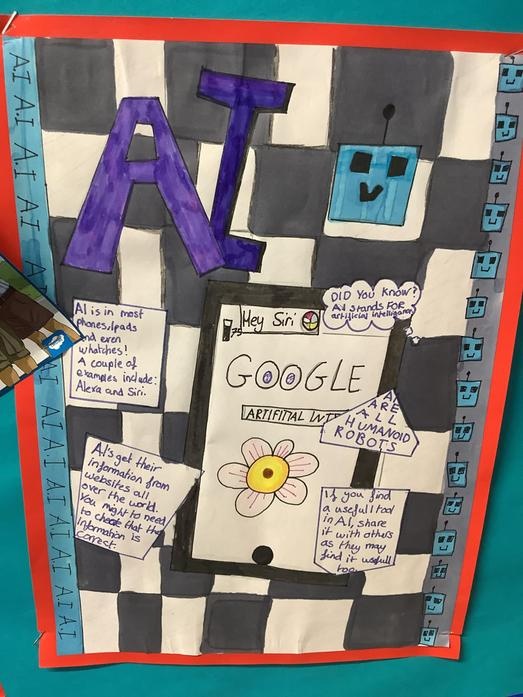 AI AI AI AI
AI
DID YOU KNOW?
AI STANDS FOR
artificial intelligence
AI is in most
phones, Ipads
and even
whatches!
A couple of
examples include:
Alexa and Siri.
75
Hey Siri
GOOGLE
ARTIFITIAL INT
ARE
ALL
HUMANOID
ROBOTS
AI's get their
information from
websites all
over the world.
You might to need
to cheak that the
information is
correct.
If you find
a usefull tool
in AI, share
it with others
as they may
find it usefull
too.
AI AI AI AI AI AI AI AI